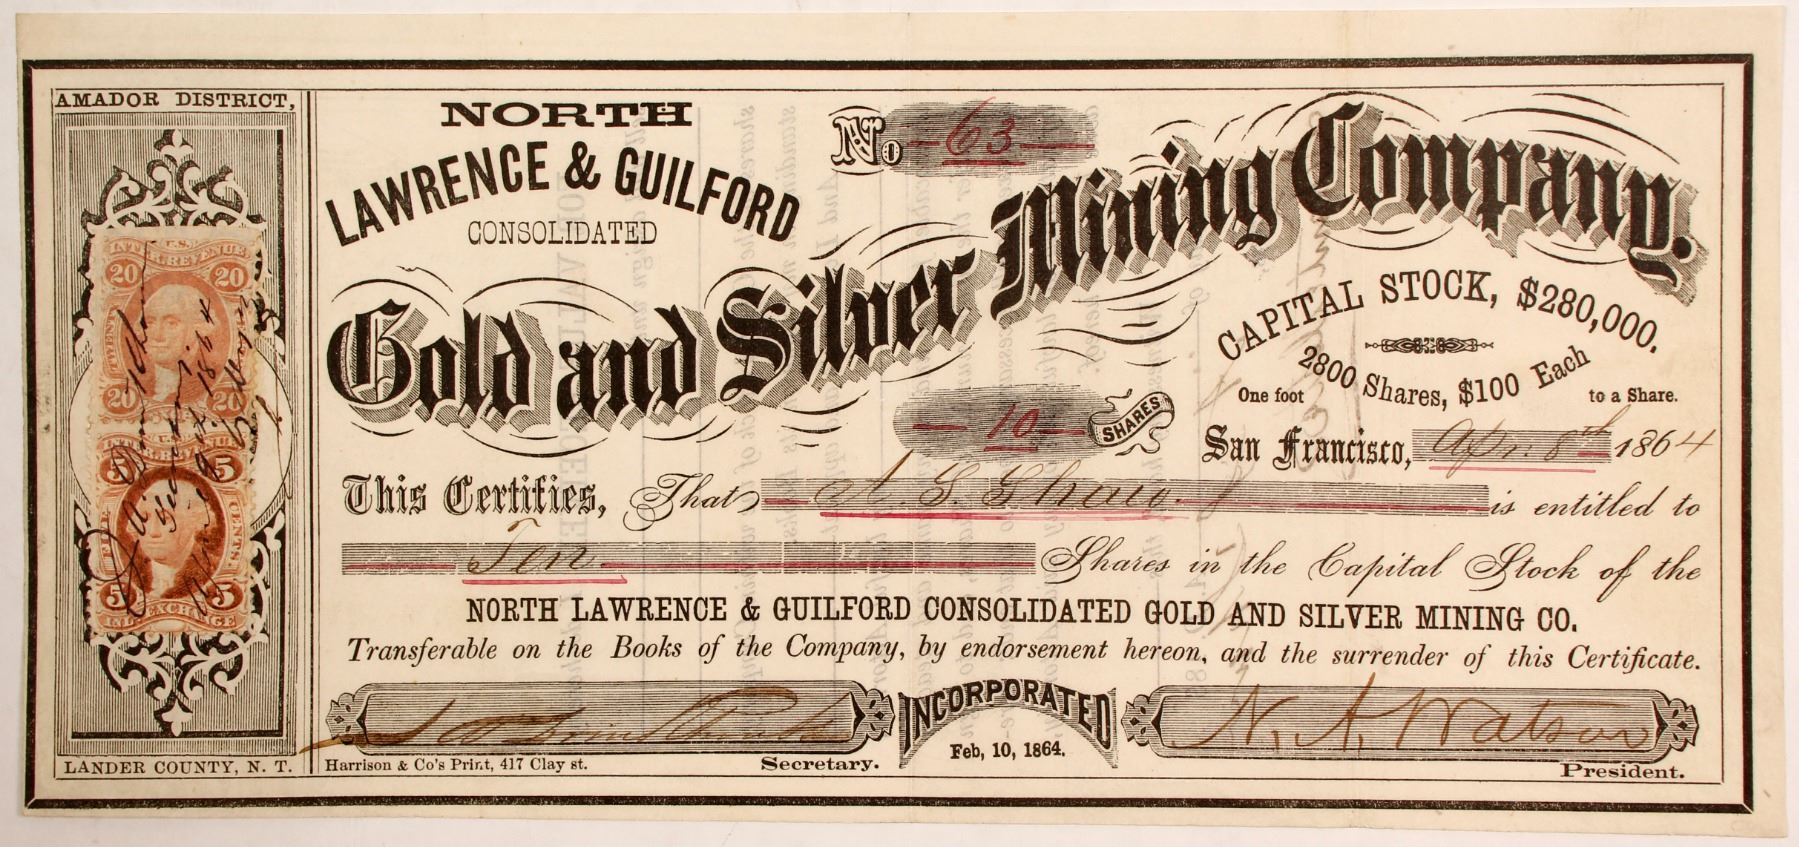 AMADOR DISTRICT,
NORTH
LAWRENCE & GUILFORD
CONSOLIDATED
No. 63
Gold and Silver Mining Company.
CAPITAL STOCK, $280,000.
2800 Shares, $100 Each
One foot to a Share.
10 SHARES
San Francisco, Apr. 8th 1864
This Certifies, That A. S. Shaw is entitled to
Ten Shares in the Capital Stock of the
NORTH LAWRENCE & GUILFORD CONSOLIDATED GOLD AND SILVER MINING CO.
Transferable on the Books of the Company, by endorsement hereon, and the surrender of this Certificate.
INCORPORATED
Feb, 10, 1864.
N. A. Watson
Secretary.
President.
LANDER COUNTY, N. T.
Harrison & Co's Print, 417 Clay st.
INTER. REVENUE
U.S.
20 20
TWENTY
20 20
INTER. REVENUE
U.S.
5 5
FIVE CENTS
5 5
INL. EXCHANGE